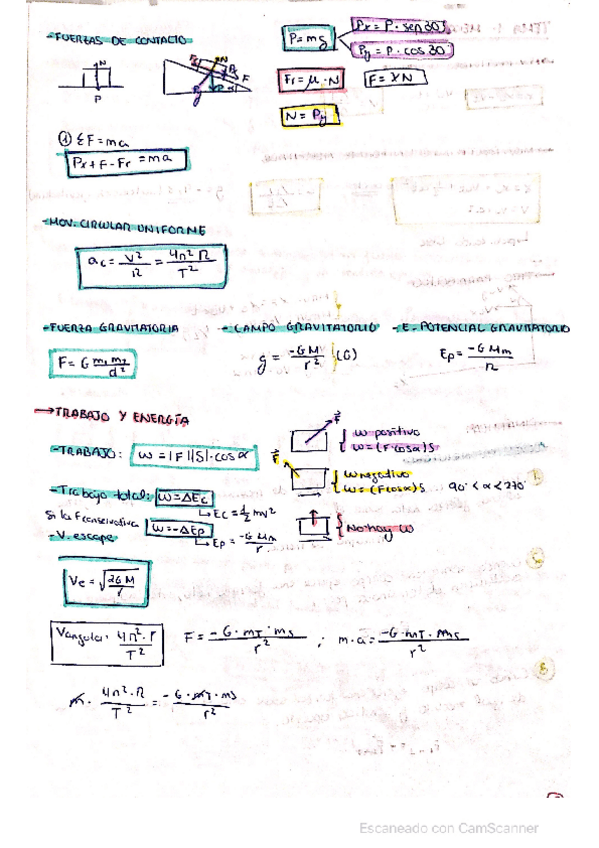 -FUERZAS DE CONTACTO
P=mg
Px = P · sen 30
Py = P · cos 30
N
P
Fr = μ · N
F = γN
N = Py
① ΣF=ma
Px + F - Fr = ma
-MOV. CIRCULAR UNIFORME
ac = v²/r = 4π² r/T²
-FUERZA GRAVITATORIA
F = G m₁ m₂/d²
-CAMPO GRAVITATORIO
g = -G M/r² (G)
-E. POTENCIAL GRAVITATORIO
Ep = -G Mm/r
→TRABAJO Y ENERGÍA
-TRABAJO: W = |F||S|·cos α
F
W positivo
W = (F·cos α) S
F
W negativo
W = (F cos α) S 90° < α < 270°
No hay W
-Trabajo total: W = ΔEc
↳ Ec = ½ mv²
Si la F conservativa W = -ΔEp
↳ Ep = -G Mm/r
-V. escape
Ve = √2GM/r
Vangula. 4π² · r/T²
F = -G · mT · ms/r² ; m · a = -G · mT · ms/r²
m · 4π² · r/T² = -G · mT · ms/r²
Escaneado con CamScanner